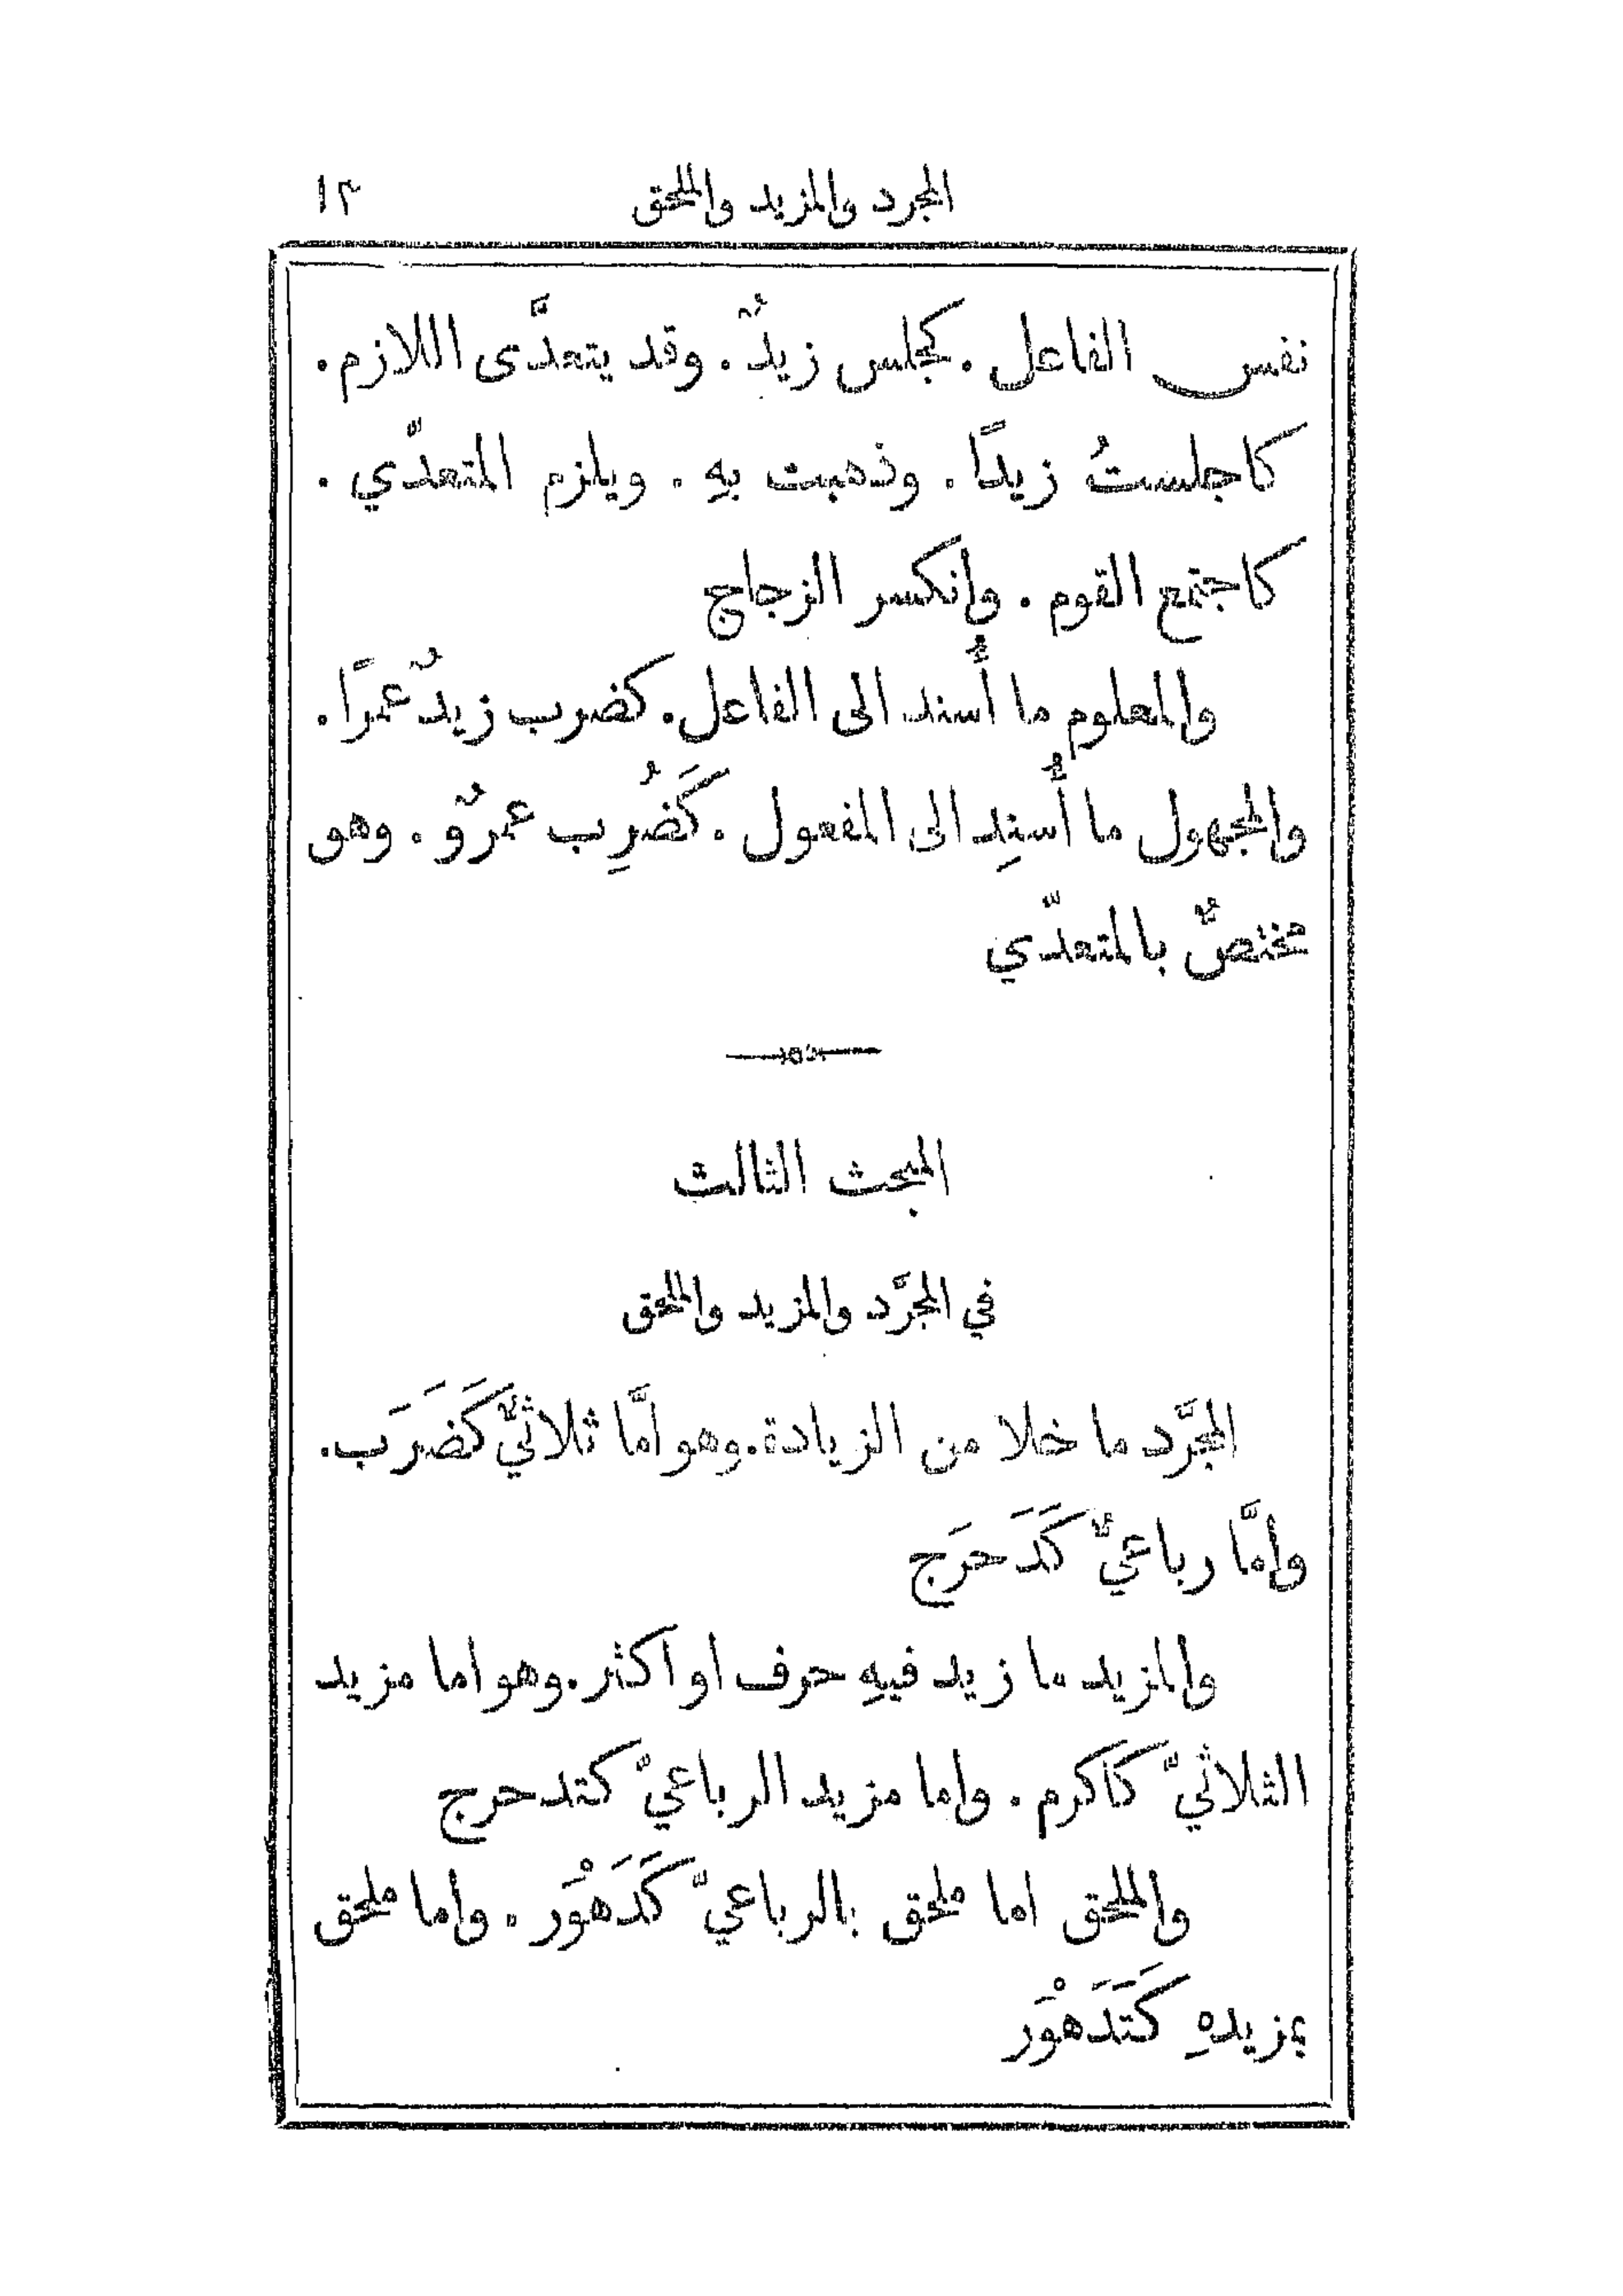 المجرد والمزيد والملحق ١٣
نفس الفاعل. كجلس زيدٌ. وقد يتعدَّى اللازم.
كاجلستُ زيدًا. وذهبت بهِ. ويلزم المتعدّي.
كاجتمع القوم. وانكسر الزجاج
والمعلوم ما أُسند الى الفاعل. كضرب زيدٌ عمرًا.
والمجهول ما أُسنِد الى المفعول. كَضُرِب عمرٌو. وهو
مختصٌّ بالمتعدّي
المبحث الثالث
في المجرَّد والمزيد والملحق
المجرَّد ما خلا من الزيادة. وهو امَّا ثلاثيٌّ كَضَرَب.
وامَّا رباعيٌّ كَدَحرَج
والمزيد ما زيد فيهِ حرف او اكثر. وهو اما مزيد
الثلاثيّ كاكرم. واما مزيد الرباعيّ كتدحرج
والملحق اما ملحق بالرباعيّ كَدَهْوَر. واما ملحق
بمزيدهِ كَتَدَهْوَر